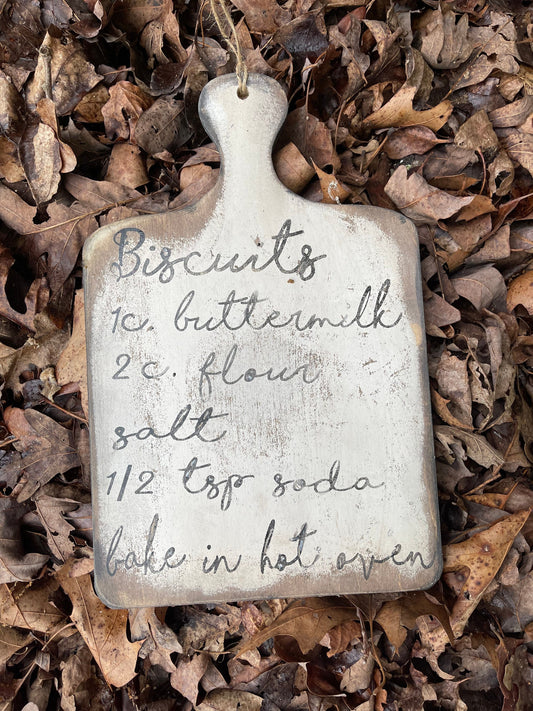 Biscuits
1c. buttermilk
2c. flour
salt
1/2 tsp soda
bake in hot oven